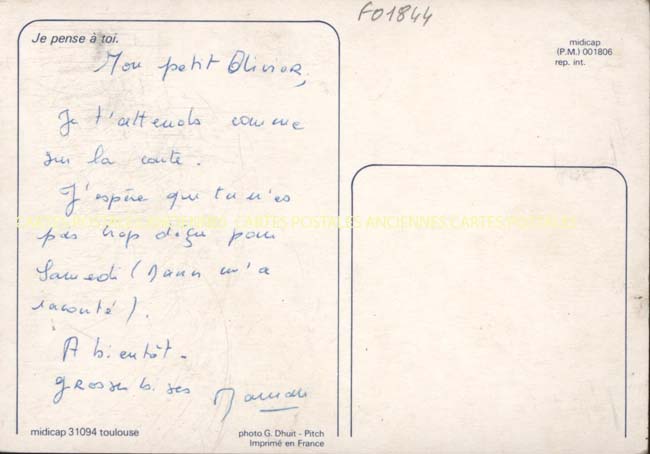 F01844
Je pense à toi.
midicap
(P.M.) 001806
rep. int.
Mon petit Olivier,
Je t'attends comme
sur la carte.
J'espère que tu n'es
pas trop déçu pour
Samedi ( m'a
raconté).
A bientôt.
grosses bises
CARTES POSTALES ANCIENNES CARTES POSTALES
midicap 31094 toulouse
photo G. Dhuit - Pitch
Imprimé en France